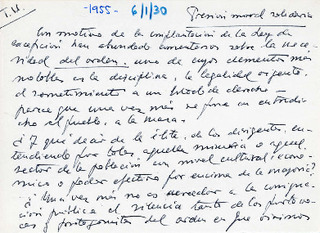 T.V.
-1955- 6/1/30
Presión moral solidaria
Con motivo de la implantación de la Ley de
excepción han abundado comentarios sobre la nece-
sidad del orden, uno de cuyos elementos más
notables es la disciplina, la legalidad vigente,
el sometimiento a un Estado de derecho —
parece que una vez más se pone en entredi-
cho al pueblo, a la masa.—
¿Y qué decir de la élite, de los dirigentes, en-
tendiendo por tales, aquella minoría o aquel
sector de la población con nivel cultural, econó-
mico o poder efectivo por encima de la mayoría?
¿Una vez más no es acreedor a la indigna-
ción pública el silencio tanto de los portavo-
ces y protagonistas del orden en que vivimos